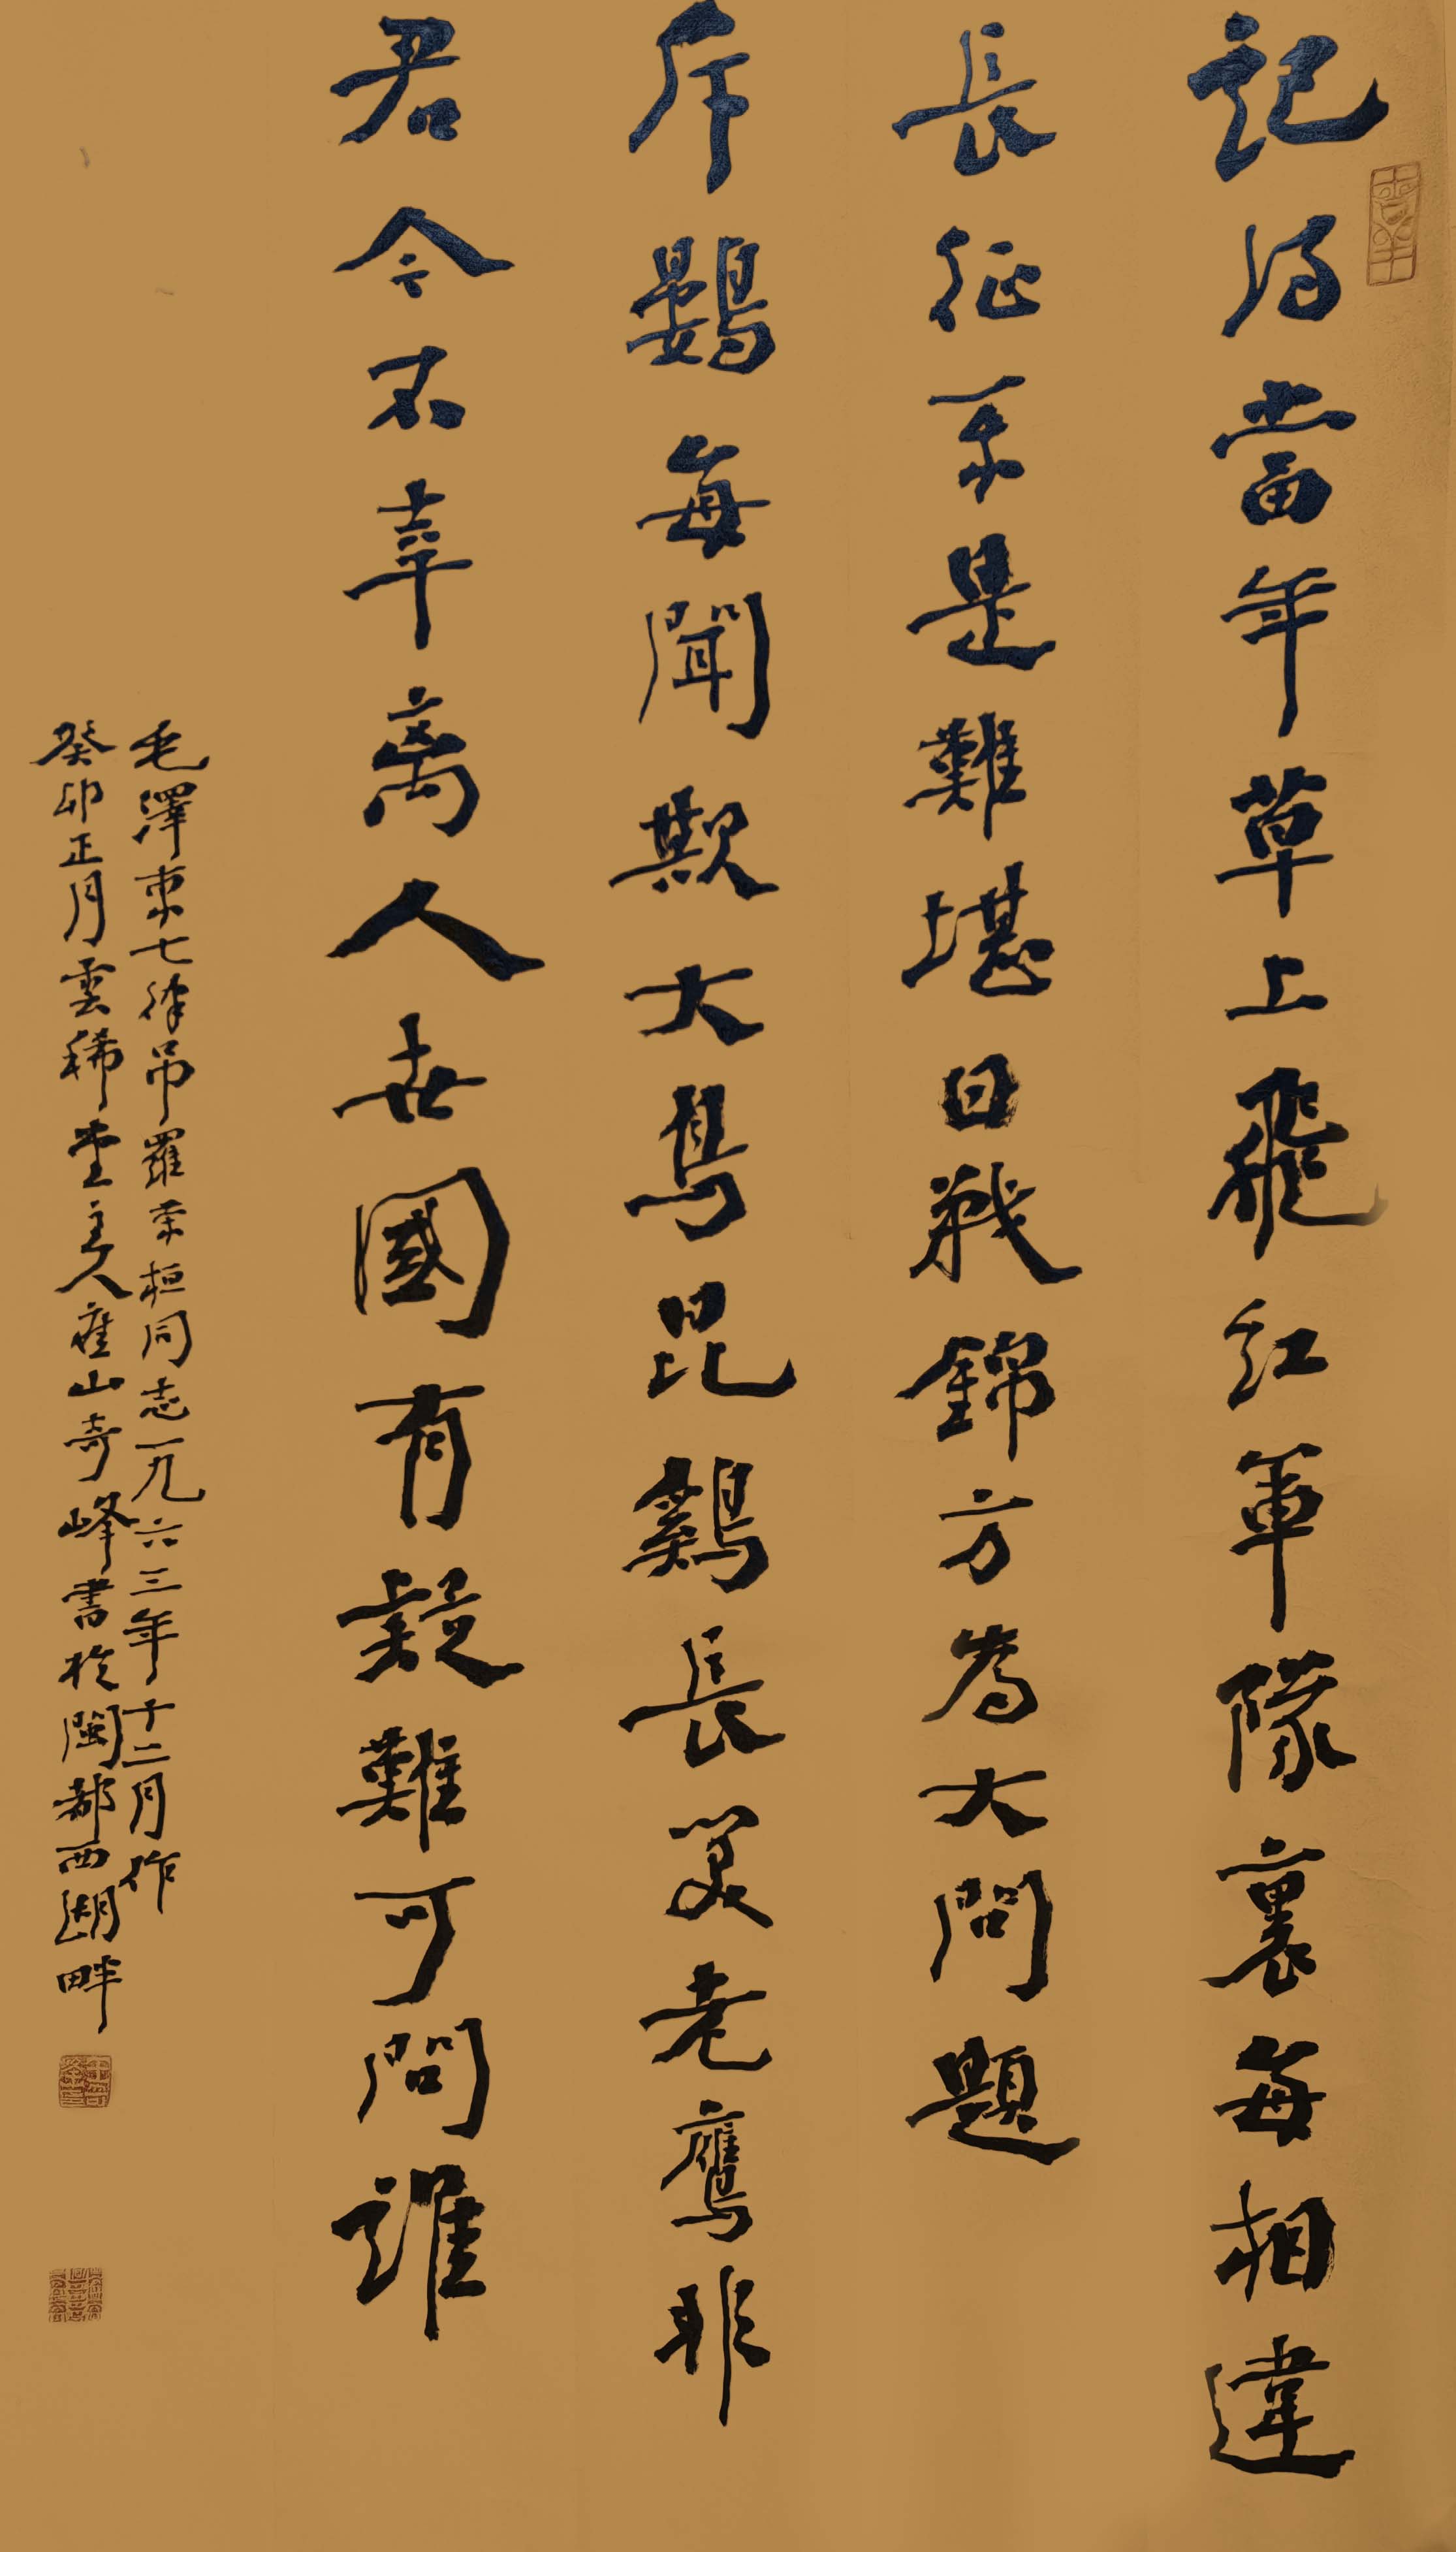 記得當年草上飛紅軍隊裏每相違
長征不是難堪日戰錦方為大問題
斥鷃每聞欺大鳥昆鷄長笑老鷹非
君今不幸離人世國有疑難可問誰
毛澤東七律吊羅榮桓同志一九六三年十二月作
癸卯正月雲稀堂主人崔山奇峰書於閩都西湖畔